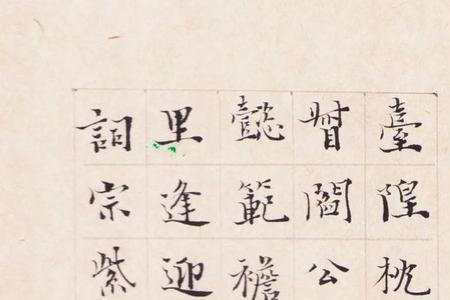 臺隍枕
督閻公
懿範襜
里逢迎
詞宗紫